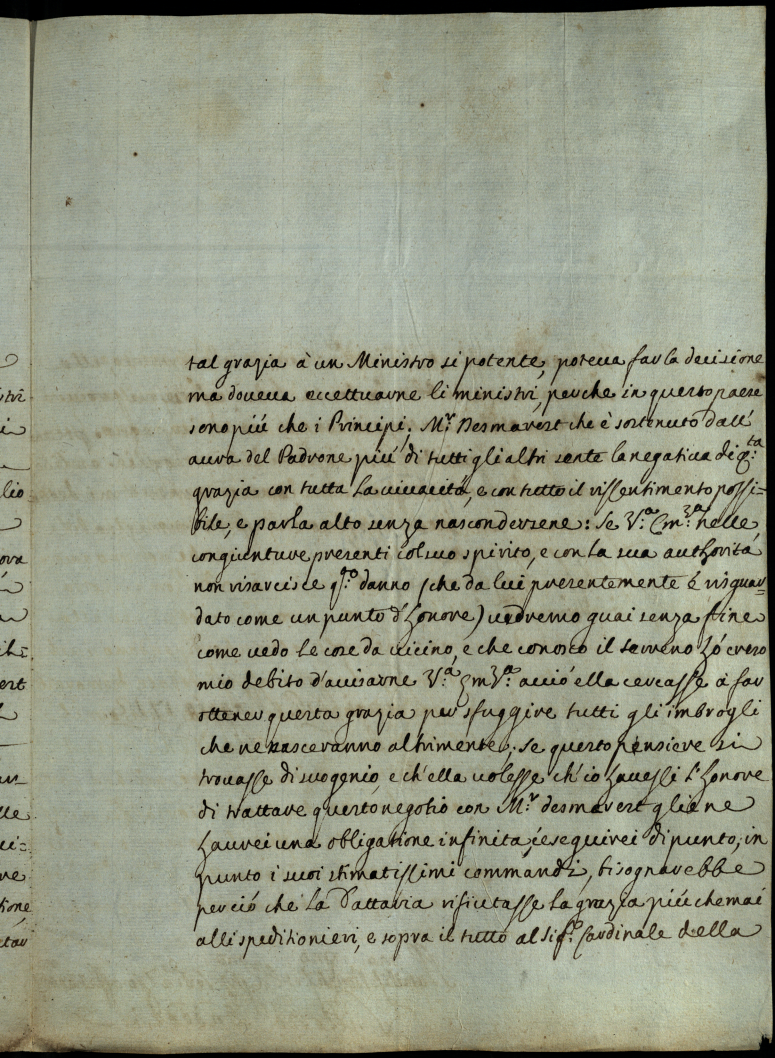 tal grazia à un Ministro si potente, poteua far la decisione
ma doueua eccettuarne li ministri, perche in questo paese
sono piú che i Principi; M.r Desmarest che è sostenuto dall'
aura del Padrone piú di tutti gli altri sente la negatiua di q.ta
grazia con tutta la viuacitá, e con tutto il rissentimento possi=
bile, e parla alto senza nascondersene: Se V.a Em.za nelle
congiunture presenti col suo spirito, e con la sua authoritá
non risarcisce q.to danno (che da lui presentemente é risguar=
dato come un punto d'honore) uedremo guai senza fine
come uedo le cose da uicino, e che conosco il terreno hó creso
mio debito d'auisarne V.a Em.za acció ella cercasse à far
ottener questa grazia per sfuggire tutti gli imbrogli
che ne nasceranno altrimente; se questo pensiere si
trouasse di suo genio, e ch'ella uolesse ch'io hauessi l'honore
di trattare questo negotio con M.r desmarest gliene
haurei una obligatione infinita; eseguirei di punto, in
punto i suoi stimatissimi commandi, bisognarebbe
perció che la Dattaria rifiutasse la grazia piú che mai
alli speditionieri, e sopra il tutto al Sig.r Cardinale della